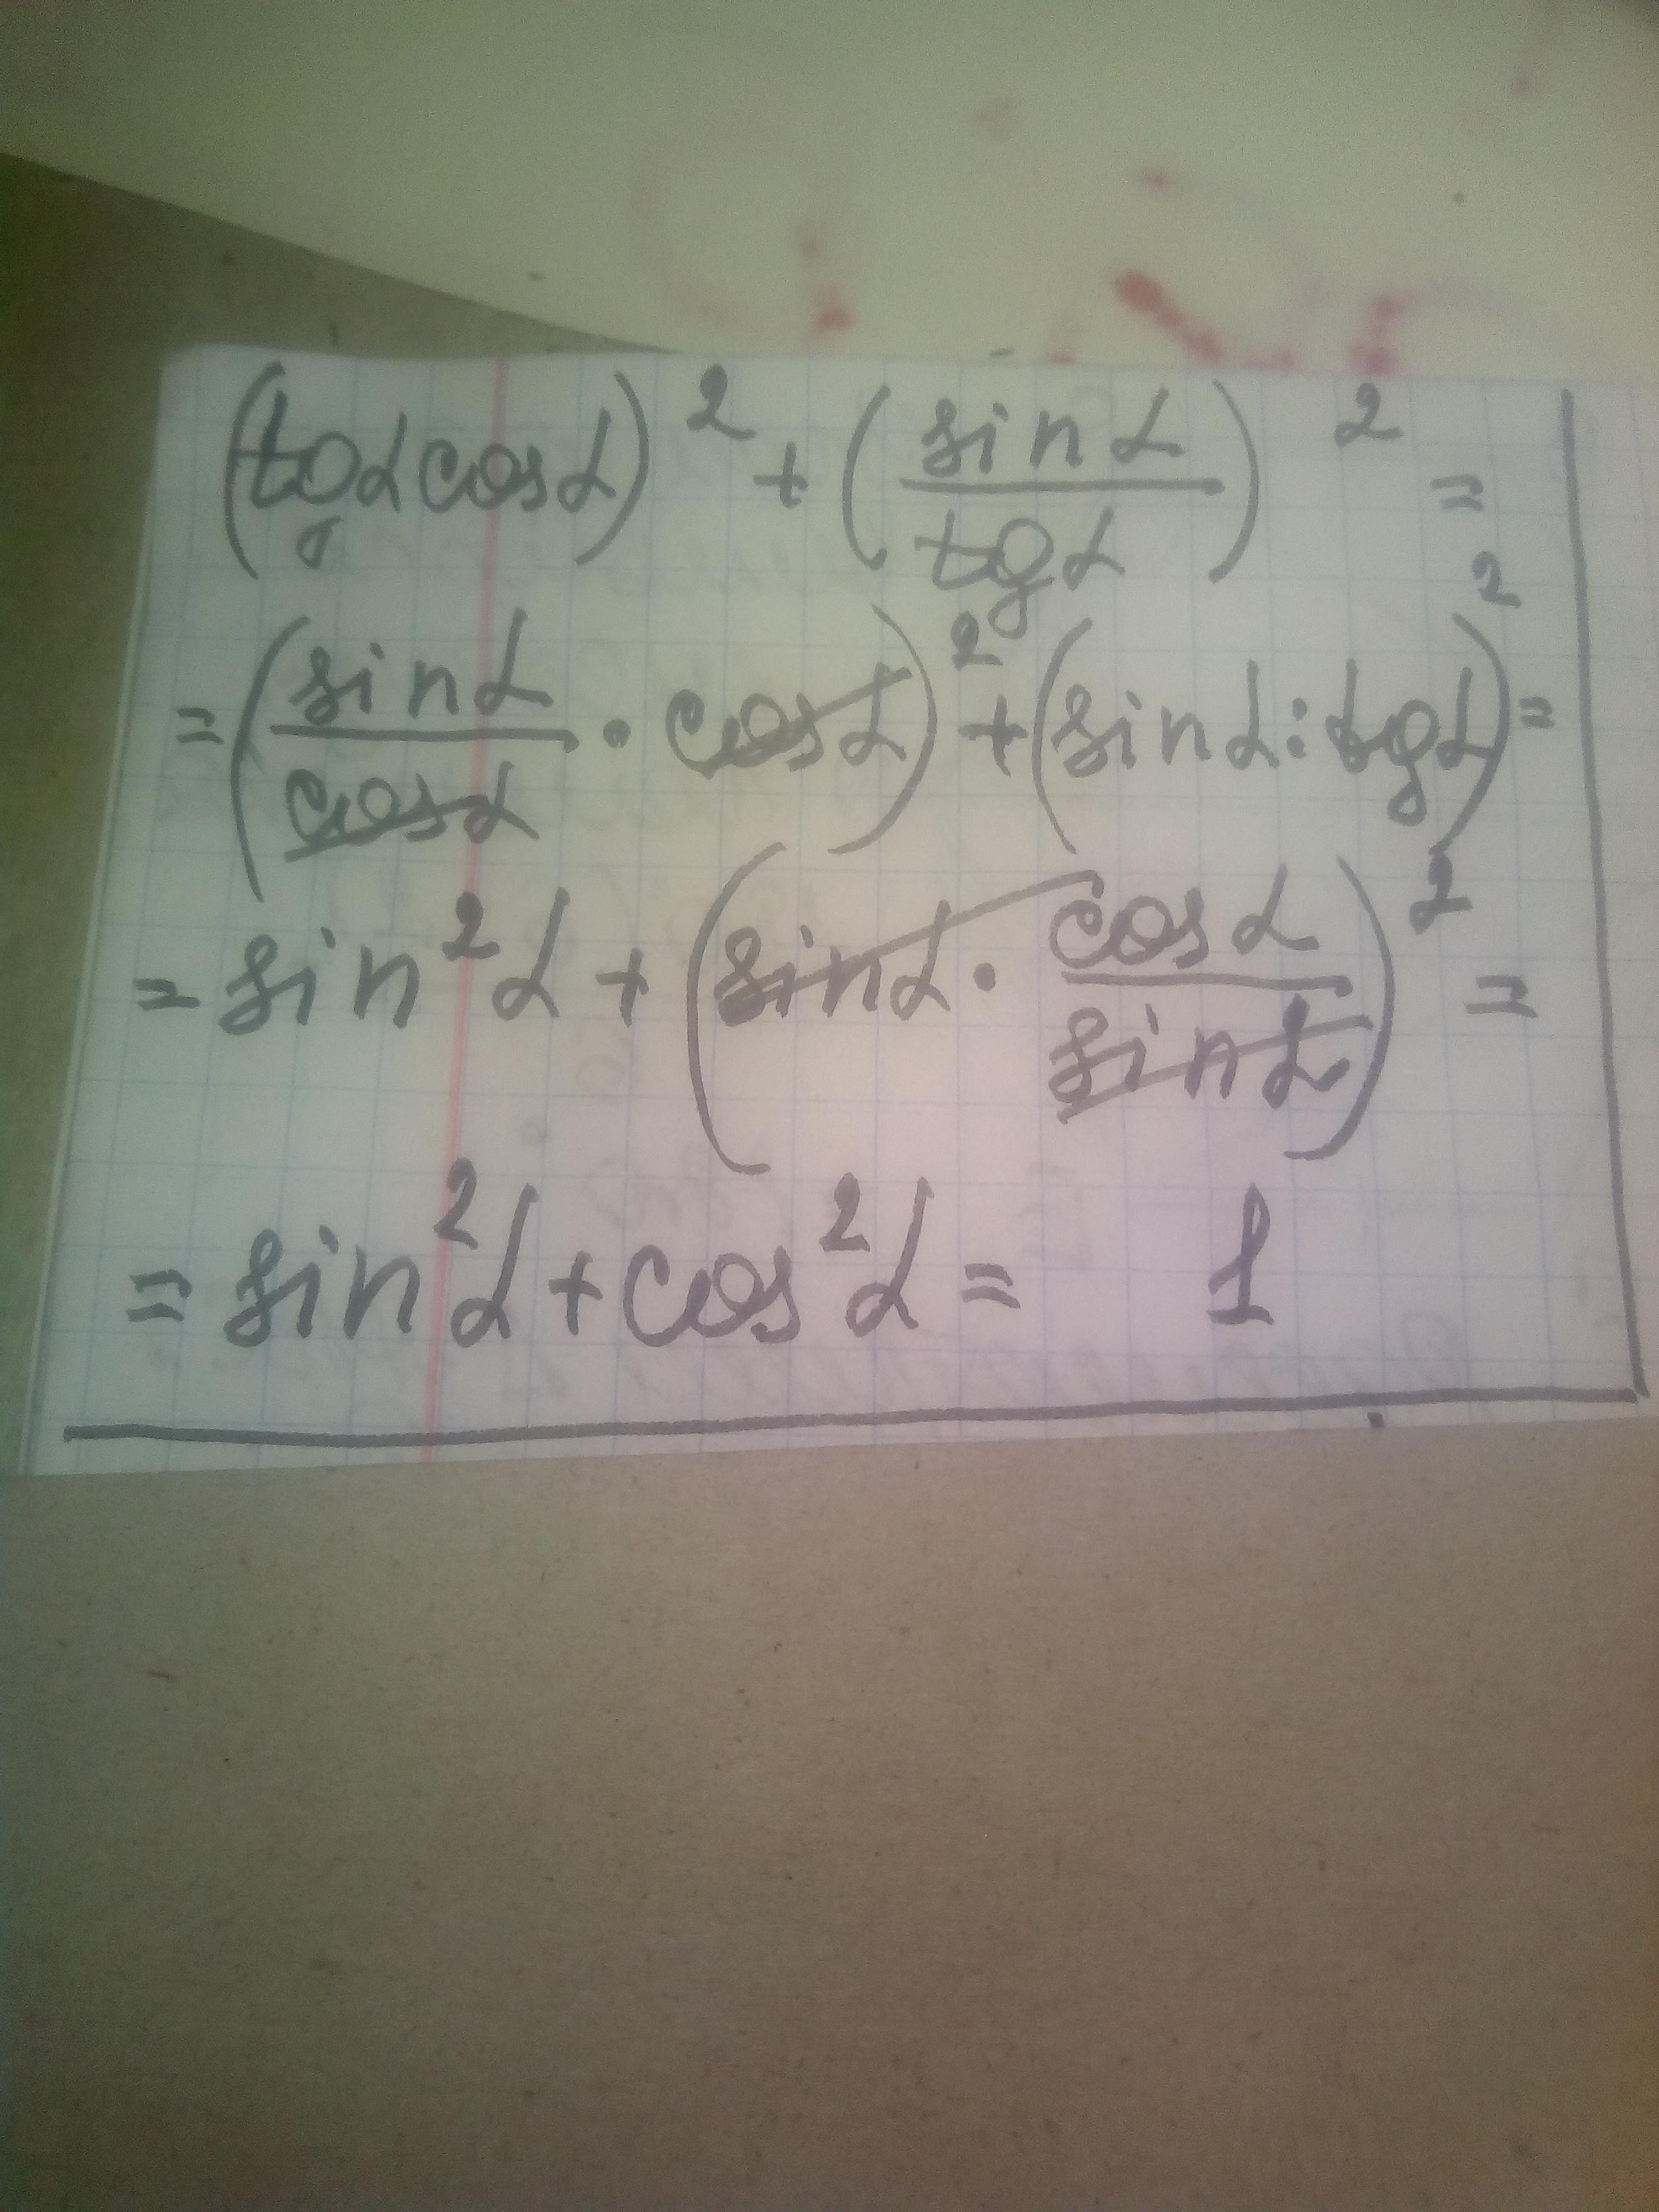 (tgα cosα)² + (sinα / tgα)² =
= (sinα / cosα · cosα)² + (sinα : tgα)² =
= sin²α + (sinα · cosα / sinα)² =
= sin²α + cos²α = 1